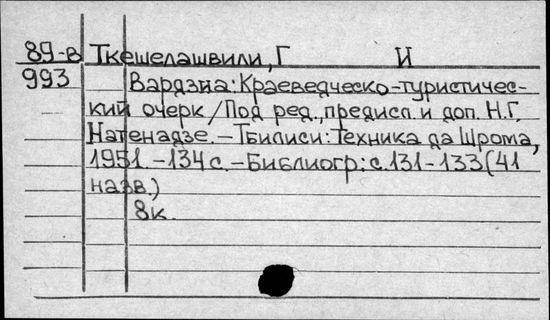 89-в Ткешелашвили, Г И
993 Вардзиа: Краеведческо-туристичес-
кий очерк / Под ред., предисл. и доп. Н.Г.
Натенадзе. - Тбилиси: Техника да Шрома,
1951. - 134 с. - Библиогр: с. 131-133 (41
назв.)
8к.